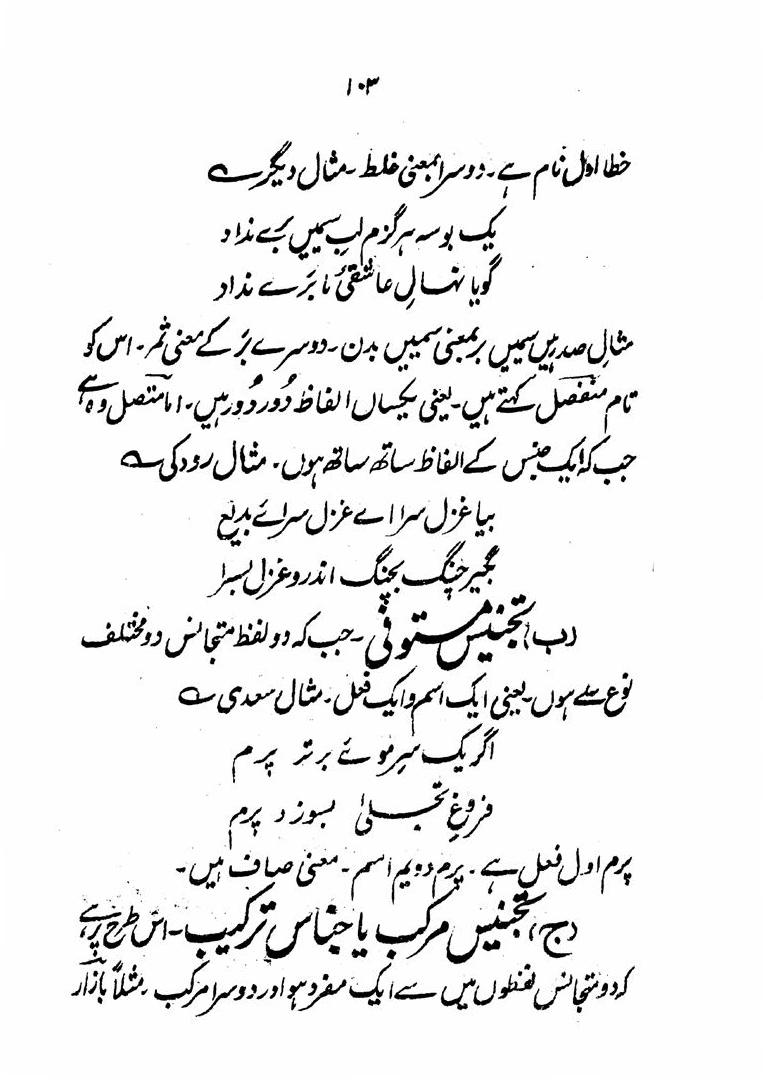 ۱۰۳
خطا اول نام ہے۔ دوسرا بمعنی غلط۔ مثال دیگر ؎
یک بوسہ ہرگزم لبِ سمیں بَرے نداد
گویا نہالِ عاشقیٔ ما بَرے نداد
مثالِ صدر میں سمیں بر بمعنی سمیں بدن۔ دوسرے بَر کے معنی ثمر۔ اس کو
تام منفصل کہتے ہیں۔ یعنی یکساں الفاظ دُور دُور ہیں۔ اما متصل وہ ہے
جب کہ ایک جنس کے الفاظ ساتھ ساتھ ہوں۔ مثال رودکی ؎
بیا غزل سرا اے غزل سرائے بدیع
بگیر چنگ بچنگ اندر و غزل بسرا
(ب) تجنیس مستوفی۔ جب کہ دو لفظ متجانس دو مختلف
نوع سے ہوں۔ یعنی ایک اسم و ایک فعل۔ مثال سعدی ؎
اگر یک سرِ موئے برتر پرم
فروغِ تجلیٰ بسوزد پرم
پرم اول فعل ہے۔ پرم دویم اسم۔ معنی صاف ہیں۔
(ج) تجنیس مرکب یا جناس ترکیب۔ اس طرح پر ہے
کہ دو متجانس لفظوں میں سے ایک مفرد ہو اور دوسرا مرکب۔ مثلاً بازار